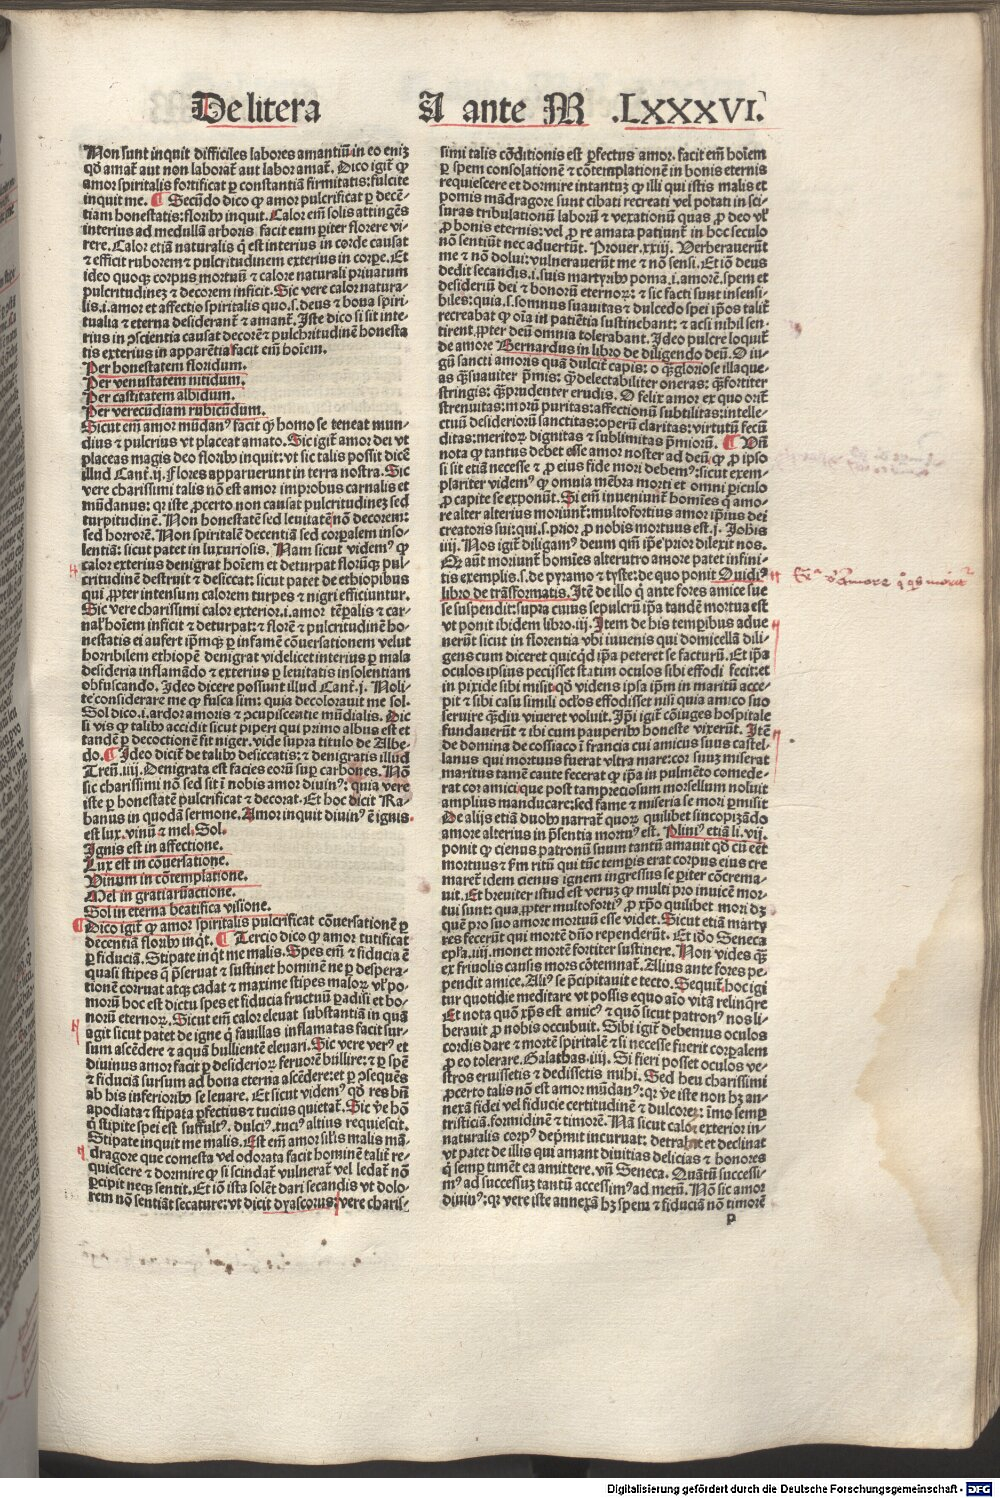 De litera A ante M .LXXXVI.
Non sunt inquit difficiles labores amantiũ: in eo eniz
qď amat̃ aut non laborat̃ aut labor amat̃. Dico igit̃ ꝙ
amor spiritalis fortificat ꝑ constantiã firmitatis: fulcite
inquit me. ¶ Secũdo dico ꝙ amor pulcrificat ꝑ decẽ-
tiam honestatis: floribꝰ inquit. Calor em̃ solis attingẽs
interius ad medullã arboris facit eum ꝑiter florere vi-
rere. Calor etiã naturalis q̃ est interius in corde causat
⁊ efficit ruborem ⁊ pulcritudinem exterius in corꝑe. Et
ideo quoqꝫ corpus mortuũ ⁊ calore naturali priuatum
pulcritudinez ⁊ decorem inficit. Sic vere calor natura-
lis .i. amor et affectio spiritalis quo .s. deus ⁊ bona spiri-
tualia ⁊ eterna desiderant̃ ⁊ amant̃. Iste dico si sit inte-
rius in ꝯscientia causat decorẽ ⁊ pulchritudinẽ honesta
tis exterius in apparẽtia facit em̃ hoiem.
Per honestatem floridum.
Per venustatem nitidum.
Per castitatem albidum.
Per verecũdiam rubicũdum.
Sicut em̃ amor mũdanꝰ facit ꝙ homo se teneat mun-
dius ⁊ pulcrius vt placeat amato. Sic igit̃ amor dei vt
placeas magis deo floribꝰ inquit: vt sic talis possit dicẽ
illud Cant̃. ij. Flores apparuerunt in terra nostra. Sic
vere charissimi talis nõ est amor improbus carnalis et
mũdanus: qr iste ꝓcerto non causat pulcritudinez sed
turpitudinẽ. Non honestatẽ sed leuitatẽ nõ decorem:
sed horrorẽ. Non spiritalẽ decentiã sed corꝑalem inso-
lentiã: sicut patet in luxuriosis. Nam sicut videmꝰ ꝙ
calor exterius denigrat hoiem et deturpat florũqꝫ pul-
critudinẽ destruit ⁊ desiccat: sicut patet de ethiopibus
qui ꝓpter intensum calorem turpes ⁊ nigri efficiuntur.
Sic vere charissimi calor exterior .i. amor tẽꝑalis ⁊ car-
nal hoiem inficit ⁊ deturpat: ⁊ florẽ ⁊ pulcritudinẽ ho-
nestatis ei aufert ip̃mqꝫ ꝑ infamẽ cõuersationem velut
horribilem ethiopẽ denigrat videlicet interius ꝑ mala
desideria inflamãdo ⁊ exterius ꝑ leuitatis insolentiam
obfuscando. Ideo dicere possunt illud Cant̃. j. Noli-
te considerare me ꝙ fusca sim: quia decolorauit me sol.
Sol dico .i. ardor amoris ⁊ ꝯcupiscentie mũdialis. Sic
si vis ꝙ talibꝰ accidit sicut piperi qui primo albus est et
tandẽ ꝑ decoctionẽ fit niger. vide supra titulo de Albe-
do. ¶ Ideo dicit̃ de talibꝰ desiccatis: ⁊ denigratis illud
Tren̄. iiij. Denigrata est facies eorũ suꝑ carbones. Nõ
sic charissimi nõ sed sit ĩ nobis amor diuinꝰ: quia vere
iste ꝑ honestatẽ pulcrificat ⁊ decorat. Et hoc dicit Ra-
banus in quodã sermone. Amor inquit diuinꝰ ẽ ignis.
est lux. vinũ ⁊ mel. Sol.
Ignis est in affectione.
Lux est in cõuersatione.
Vinum in cõtemplatione.
Mel in gratiarũactione.
Sol in eterna beatifica visione.
¶ Dico igit̃ ꝙ amor spiritalis pulcrificat cõuersationẽ ꝑ
decentiã floribꝰ inq̃t. ¶ Tercio dico ꝙ amor tutificat
ꝑ fiduciã. Stipate inq̃t me malis. Spes em̃ ⁊ fiducia ẽ
quasi stipes q̃ p̃seruat ⁊ sustinet hominẽ ne ꝑ despera-
tionẽ corruat atqꝫ cadat ⁊ maxime stipes maloꝝ vl̕ po-
morũ hoc est dictu spes et fiducia fructuũ ꝑadisi et bo-
norũ eternoꝝ. Sicut em̃ calor eleuat substantiã in quã
agit sicut patet de igne q̃ fauillas inflamatas facit sur-
sum ascẽdere ⁊ aquã bullientẽ eleuari. Sic vere verꝰ et
diuinus amor facit ꝑ desideriorꝝ feruorẽ bullire: ⁊ ꝑ spẽ
⁊ fiduciã sursum ad bona eterna ascẽdere: et ꝑ ꝯsequẽs
ab his inferioribꝰ se leuare. Et sicut videmꝰ qď res bñ
apodiata ⁊ stipata ꝑfectius ⁊ tucius quietat̃. Sic v̓e hõ
q̃ stipite spei est suffultꝰ. dulciꝰ. tuciꝰ altius requiescit.
Stipate inquit me malis. Est em̃ amor sil̕is malis mã-
dragore que comesta vel odorata facit hominẽ talit̃ re-
quiescere ⁊ dormire ꝙ si scindat̃ vulnerat̃ vel ledat̃ nõ
ꝑcipit neqꝫ sentit. Et iõ ista solẽt dari secandis vt dolo-
rem nõ sentiãt secature: vt dicit dyascorus: vere charis-
simi talis cõditionis est ꝑfectus amor. facit em̃ hoiem
ꝑ spem consolationẽ ⁊ cõtemplationẽ in bonis eternis
requiescere et dormire intantuz ꝙ illi qui istis malis et
pomis mãdragore sunt cibati recreati vel potati in sci-
suras tribulationũ laborũ ⁊ vexationũ quas ꝓ deo vl̕
ꝓ bonis eternis: vel ꝓ re amata patiunt̃ in hoc seculo
nõ sentiũt nec aduertũt. Prouer. xxiij. Verberauerũt
me ⁊ nõ dolui: vulnerauerũt me ⁊ nõ sensi. Et iõ deus
dedit secandis .i. suis martyribꝰ poma .i. amorẽ. spem et
desideriũ dei ⁊ bonorũ eternoꝝ: ⁊ sic facti sunt insensi-
biles: quia .s. somnus suauitas ⁊ dulcedo spei ip̃os talit̃
recreabat ꝙ oĩa in patiẽtia sustinebant: ⁊ acsi nihil sen-
tirent ꝓpter deũ omnia tolerabant. Ideo pulcre loquit̃
de amore Bernardus in libro de diligendo deũ. O iu-
gũ sancti amoris quã dulciť capis: o q̃ gloriose illaque-
as q̃ suauiter p̃mis: q̃ delectabiliter oneras: q̃ fortiter
stringis: q̃ prudenter erudis. O felix amor ex quo orit̃
strenuitas: morũ puritas: affectionũ subtilitas: intelle-
ctuũ desideriorũ sanctitas: operũ claritas: virtutũ fecũ
ditas: meritoꝝ dignitas ⁊ sublimitas p̃miorũ. ¶ Vñ
nota ꝙ tantus debet esse amor noster ad deũ: ꝙ ꝓ ipso
si sit etiã necesse ⁊ ꝓ eius fide mori debemꝰ: sicut exem-
plariter videmꝰ ꝙ omnia mẽbra morti et omni ꝑiculo
ꝓ capite se exponũt. Si em̃ inueniunt̃ homiẽs q̃ amo-
re alter alterius moriunt̃: multofortius amor ip̃ius dei
creatoris sui: qui .s. prior ꝓ nobis mortuus est. j. Johis
iiij. Nos igit̃ diligamꝰ deum qm̃ ip̃e prior dilexit nos.
Qꝛ aũt moriunt̃ homiẽs alterutro amore patet infini-
tis exemplis .s. de pyramo ⁊ tysbe: de quo ponit Ouidiꝰ
libro de trãsformatis. Itẽ de illo q̃ ante fores amice sue
se suspendit: supra cuius sepulcrũ ip̃a tandẽ mortua est
vt ponit ibidem libro. iij. Item de his temꝑibus adue
nerũt sicut in florentia vbi iuuenis qui domicellã dili-
gens cum diceret quicq̃d ip̃a peteret se facturũ. Et ip̃a
oculos ipsius pecijsset statim oculos sibi effodi fecit: et
in pixide sibi misit qď videns ipsa ip̃m in maritũ acce-
pit ⁊ sibi casu simili oc̃los effodisset nisi quia amico suo
seruire q̃diu viueret voluit. Ip̃i igit̃ cõiuges hospitale
fundauerũt ⁊ ibi cum pauperibꝰ honeste vixerũt. Itẽ
de domina de cossiaco ĩ francia cui amicus suus castel-
lanus qui mortuus fuerat vltra mare: cor suuz miserat
maritus tamẽ caute fecerat ꝙ ip̃a in pulmẽto comede-
rat cor amici: que post tampreciosum morsellum noluit
amplius manducare: sed fame ⁊ miseria se mori ꝑmisit
De alijs etiã duobꝰ narrat̃ quoꝝ quilibet sincopizãdo
amore alterius in p̃sentia mortuꝰ est. Pliniꝰ etiã li. vij.
ponit ꝙ cienus patronũ suum tantũ amauit qď cũ eẽt
mortuus ⁊ ẜm ritũ qui tũc temꝑis erat corpus eius cre
maret̃ idem cienus ignem ingressus se ꝑiter cõcrema-
uit. Et breuiter istud est veruz ꝙ multi pro inuicẽ mor-
tui sunt: qua ꝓpter multofortiꝰ ꝓ xp̃o quilibet mori dꝫ
quẽ pro suo amore mortuũ esse videt. Sicut etiã marty
res fecerũt qui mortẽ dño rependerũt. Et iďo Seneca
epl̕a. iiij. monet mortẽ fortiter sustinere. Non vides q̃
ex friuolis causis mors cõtemnat̃. Alius ante fores pe-
pendit amice. Aliꝰ se p̃cipitauit e tecto. Sequit̃ hoc igi
tur quotidie meditare vt possis equo aĩo vitã relinq̃re
Et nota quõ xp̃s est amicꝰ ⁊ quõ sicut patronꝰ nos li-
berauit ꝓ nobis occubuit. Sibi igit̃ debemus oculos
cordis dare ⁊ mortẽ spiritalẽ ⁊ si necesse fuerit corꝑalem
ꝓ eo tolerare. Galathas. iiij. Si fieri posset oculos ve-
stros eruissetis ⁊ dedissetis mihi. Sed heu charissimi
ꝓcerto talis nõ est amor mũdanꝰ: qr v̓e iste non hꝫ an-
nexã fidei vel fiducie certitudinẽ ⁊ dulcorez: ĩmo semꝑ
tristiciã. formidinẽ ⁊ timorẽ. Nã sicut calor exterior in-
naturalis corpꝰ dep̃mit incuruat: detrahit et declinat
vt patet de illis qui amant diuitias delicias ⁊ honores
q̃ semꝑ timẽt ea amittere. vñ Seneca. Quãtũ successi-
mꝰ ad successuz tantũ accessimꝰ ad metũ. Nõ sic amor
diuinꝰ: qr vere iste annexã hꝫ spem ⁊ fiduciã nõ timorẽ
p
Digitalisierung gefördert durch die Deutsche Forschungsgemeinschaft - DFG